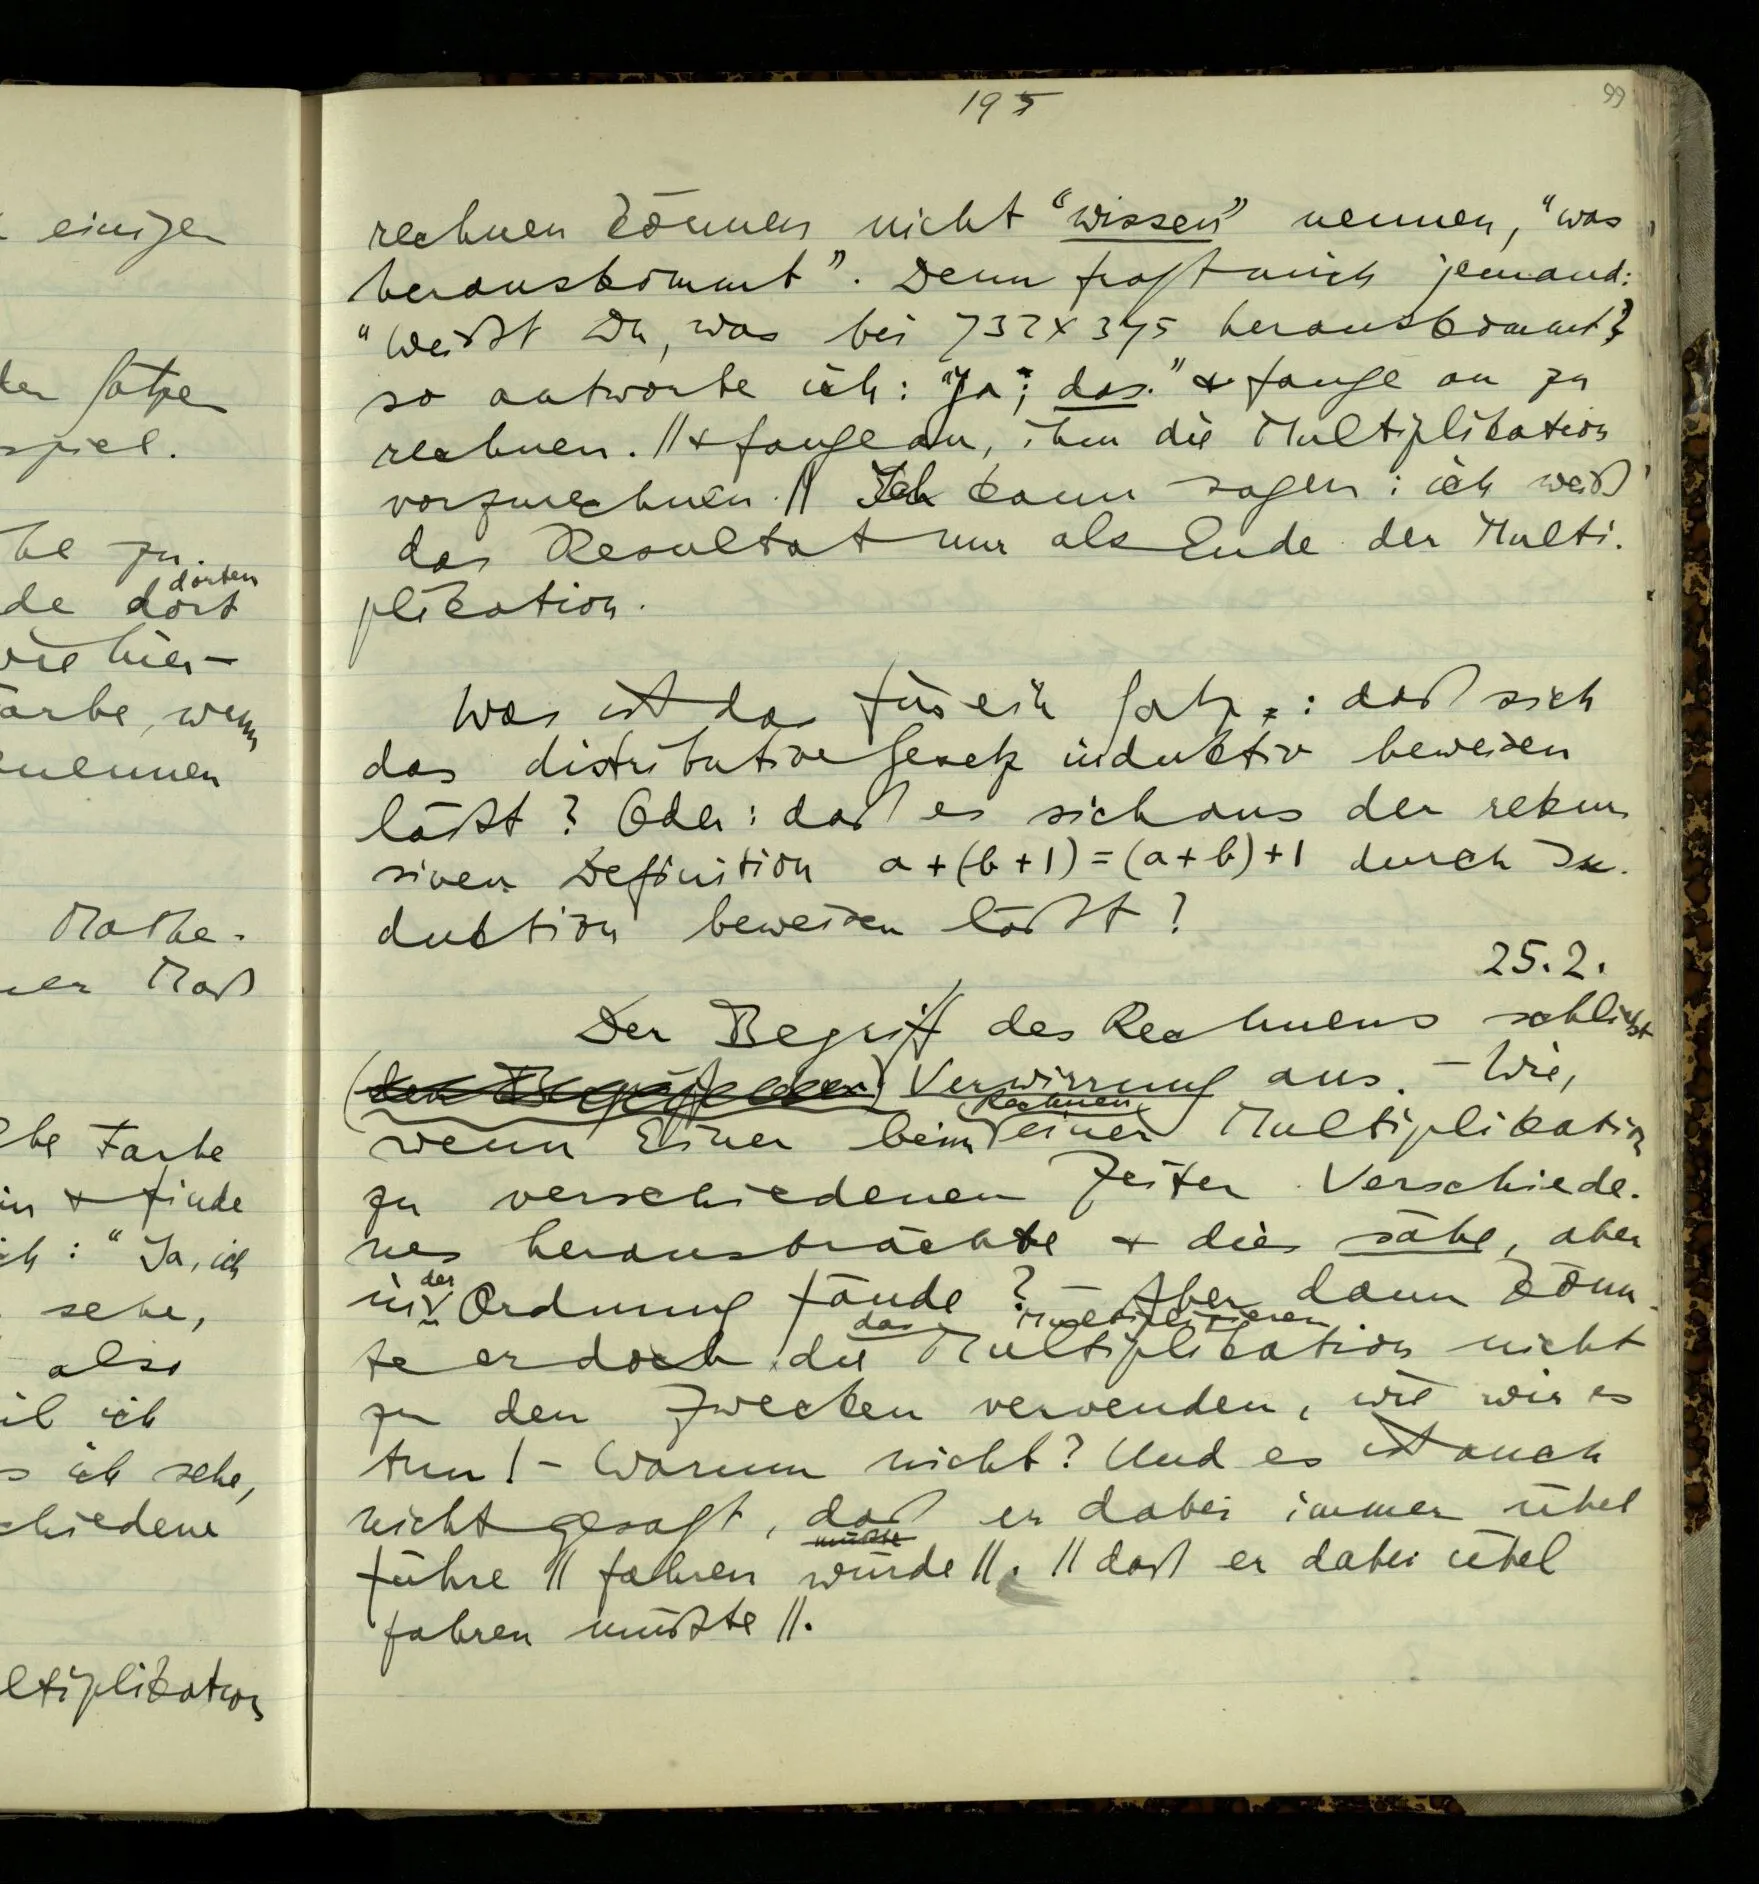 einigen
der Sätze
spiel.
he zu.
dorten
de dort
wie hier –
arbe, wenn
nennen
Mathe-
ner Maß
che Farbe
in & finde
ich: "Ja, ich
sehe,
also
il ich
s ich sehe,
chiedene
ltiplikation
195
99
rechnen können nicht "wissen" nennen, "was
herauskommt". Denn fragt mich jemand:
"Weißt Du, was bei 737 x 395 herauskommt?
so antworte ich: "Ja; das." & fange an zu
rechnen. // & fange an, ihm die Multiplikation
vorzurechnen. // Ich kann sagen: ich weiß
das Resultat nur als Ende der Multi-
plikation.
Was ist das für ein Satz: daß sich
das distributive Gesetz induktiv beweisen
läßt? Oder: daß es sich aus der rekur
siven Definition a + (b + 1) = (a + b) + 1 durch In-
duktion beweisen läßt?
25.2.
Der Begriff des Rechnens schließt
Verwirrung aus. – Wie,
Rechnen
wenn Einer beim einer Multiplikation
zu verschiedenen Zeiten Verschiede-
nes herausbrächte & dies sähe, aber
der
in Ordnung fände? – Aber dann könn-
das Multiplizieren
te er doch die Multiplikation nicht
zu den Zwecken verwenden, wie wir es
tun! – Warum nicht? Und es ist auch
nicht gesagt, daß er dabei immer übel
müßte
führe // fahren würde //. // daß er dabei übel
fahren müßte //.